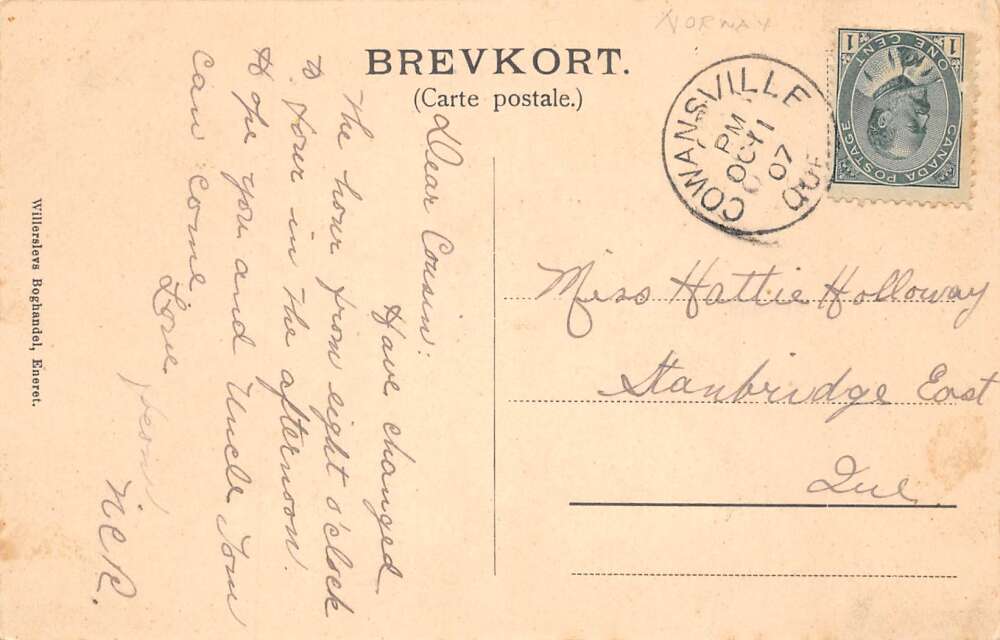 NORWAY
BREVKORT.
(Carte postale.)
COWANSVILLE
PM
OC 11
07
QUE
1 ONE CENT 1
CANADA POSTAGE
Dear Cousin:
Have changed
the hour from eight o'clock
to four in the afternoon.
Hope you and Uncle Tom
can come
Love
from
N.C.R.
Miss Hattie Holloway
Stanbridge East
Que.
Willerslevs Boghandel, Eneret.